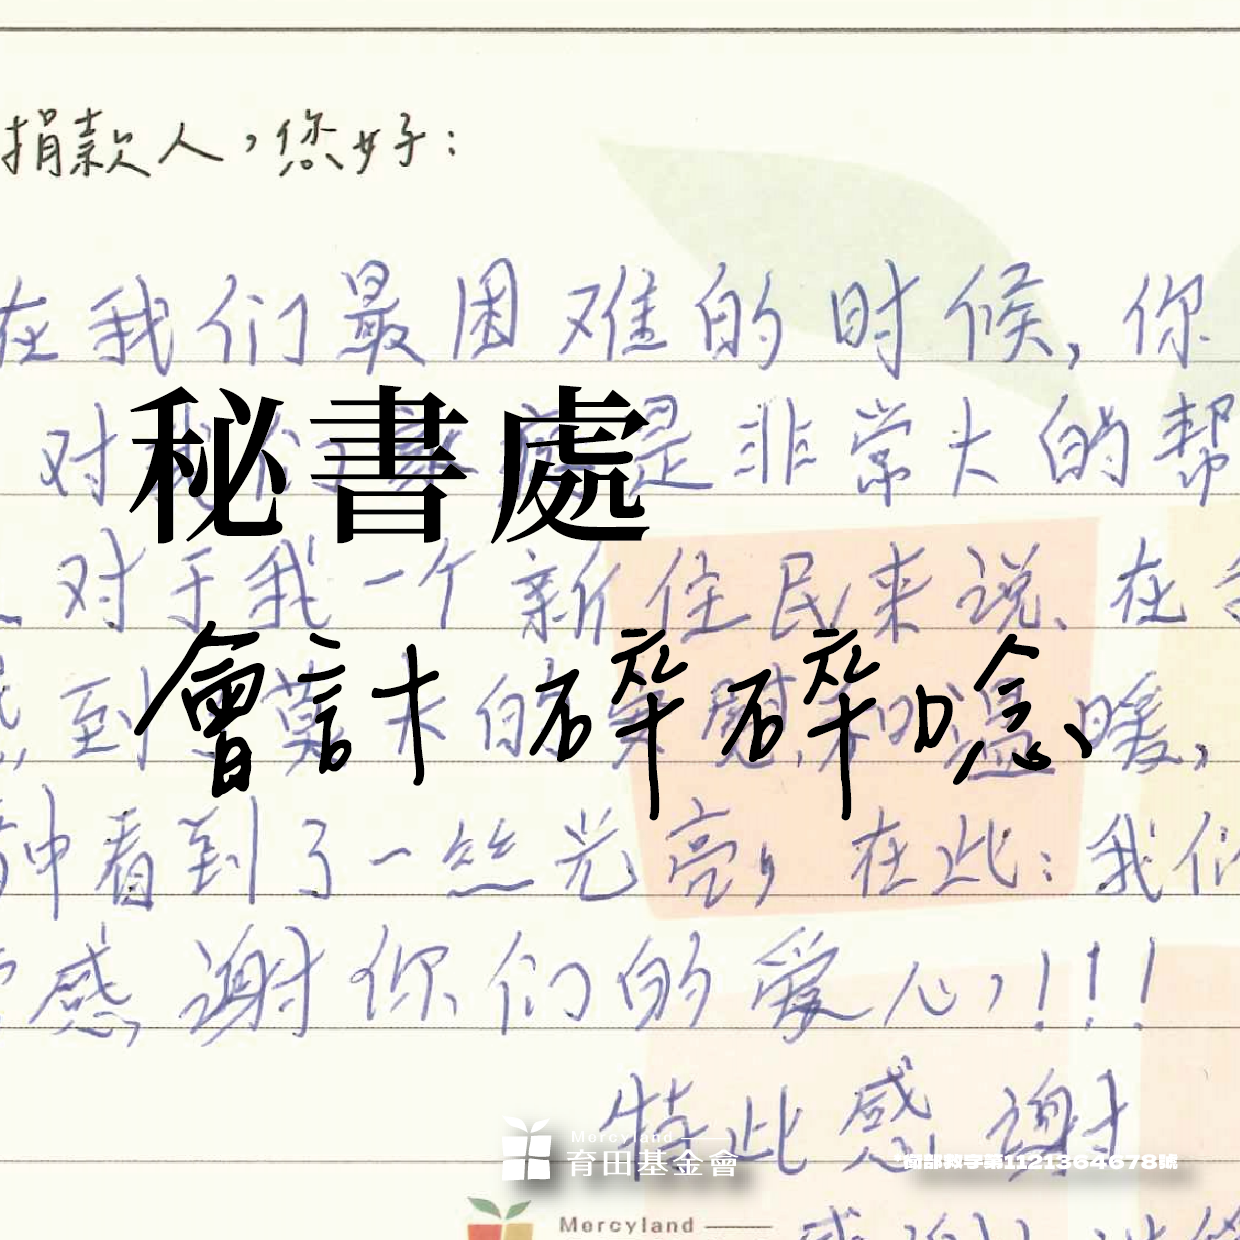 捐款人，您好：
在我们最困难的时候，你
秘書處
对我是非常大的帮
对于我一个新住民来说、在
會計碎碎唸
至莫大的和温暖，
中看到了一丝光亮，在此：我们
感谢你们的爱心，！！！
特此感谢
Mercyland
育田基金會
衛部救字第1121364678號
Mercyland